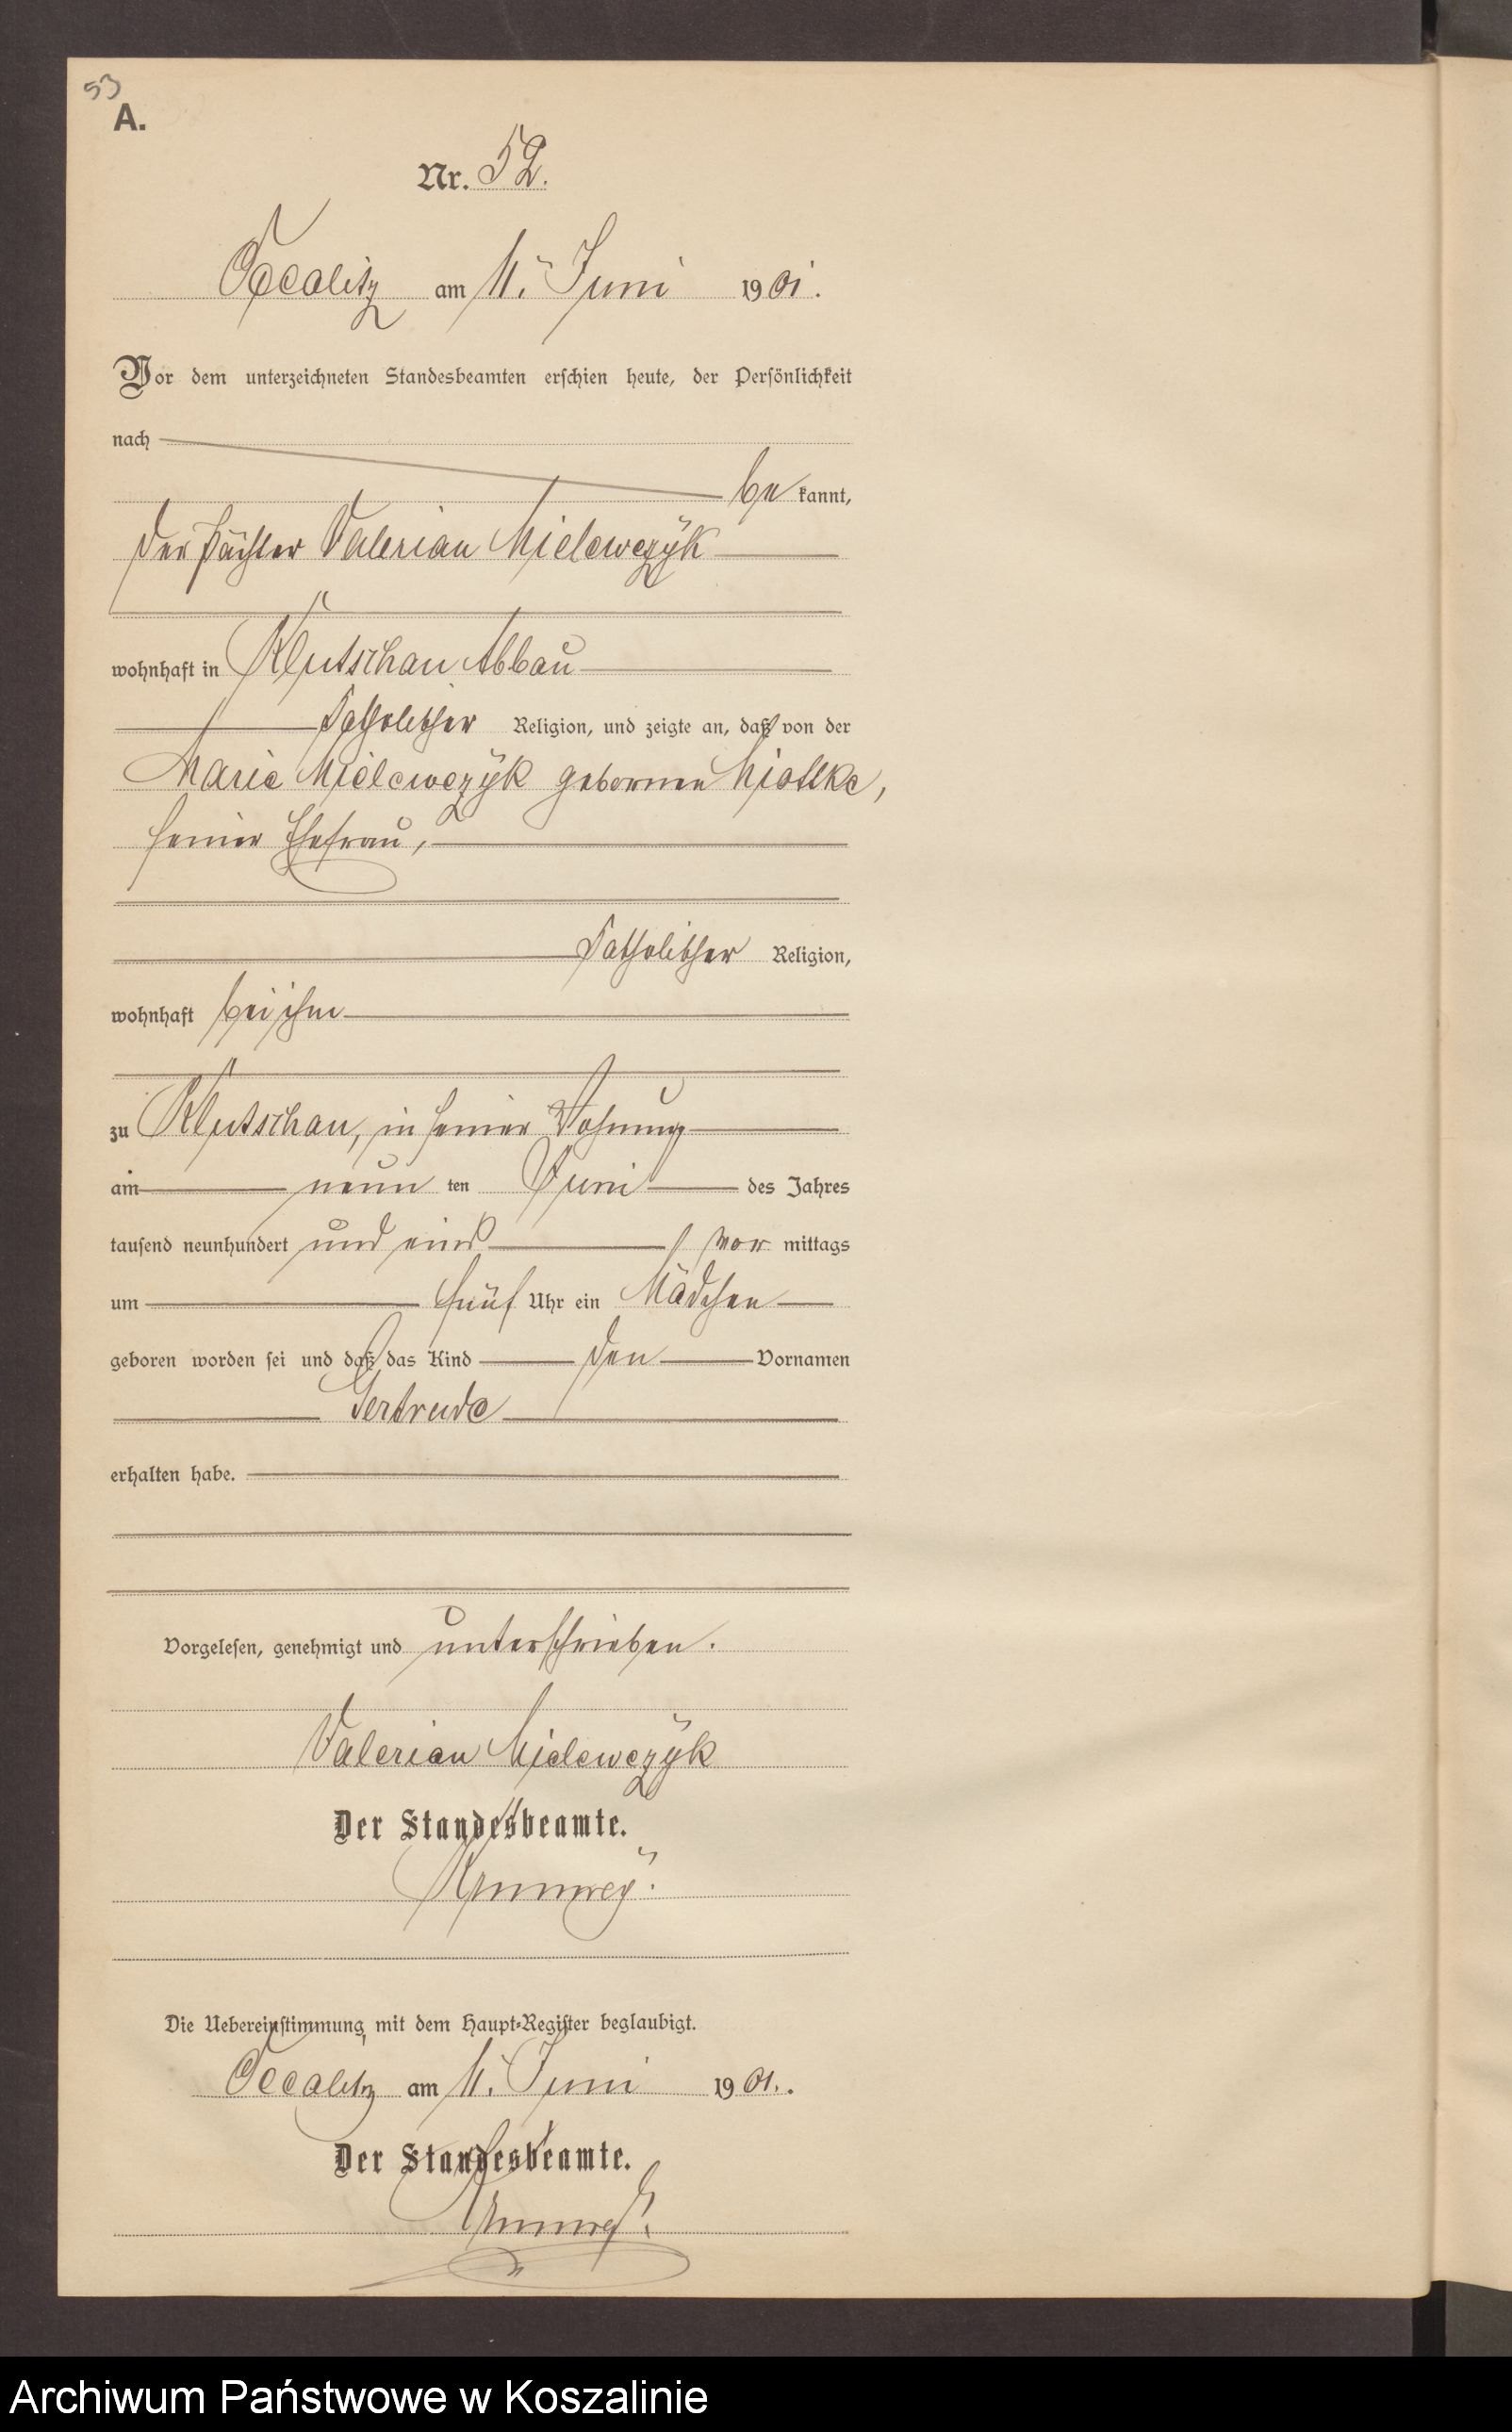 53
A.
Nr. 52.
Occalitz am 11. Juni 1901.
Vor dem unterzeichneten Standesbeamten erschien heute, der Persönlichkeit
nach
be kannt,
der Pächter Valerian Mielewczÿk
wohnhaft in Klutschau Abbau
katholischer Religion, und zeigte an, daß von der
Marie Mielewczÿk geborenen Miotke,
seiner Ehefrau,
katholischer Religion,
wohnhaft bei ihm
zu Klutschau, in seiner Wohnung
am neun ten Juni des Jahres
tausend neunhundert und eins vor mittags
um fünf Uhr ein Mädchen
geboren worden sei und daß das Kind den Vornamen
Gertrude
erhalten habe.
Vorgelesen, genehmigt und unterschrieben.
Valerian Mielewczÿk
Der Standesbeamte.
Die Uebereinstimmung mit dem Haupt-Register beglaubigt.
Occalitz am 11. Juni 1901.
Der Standesbeamte.
Archiwum Państwowe w Koszalinie